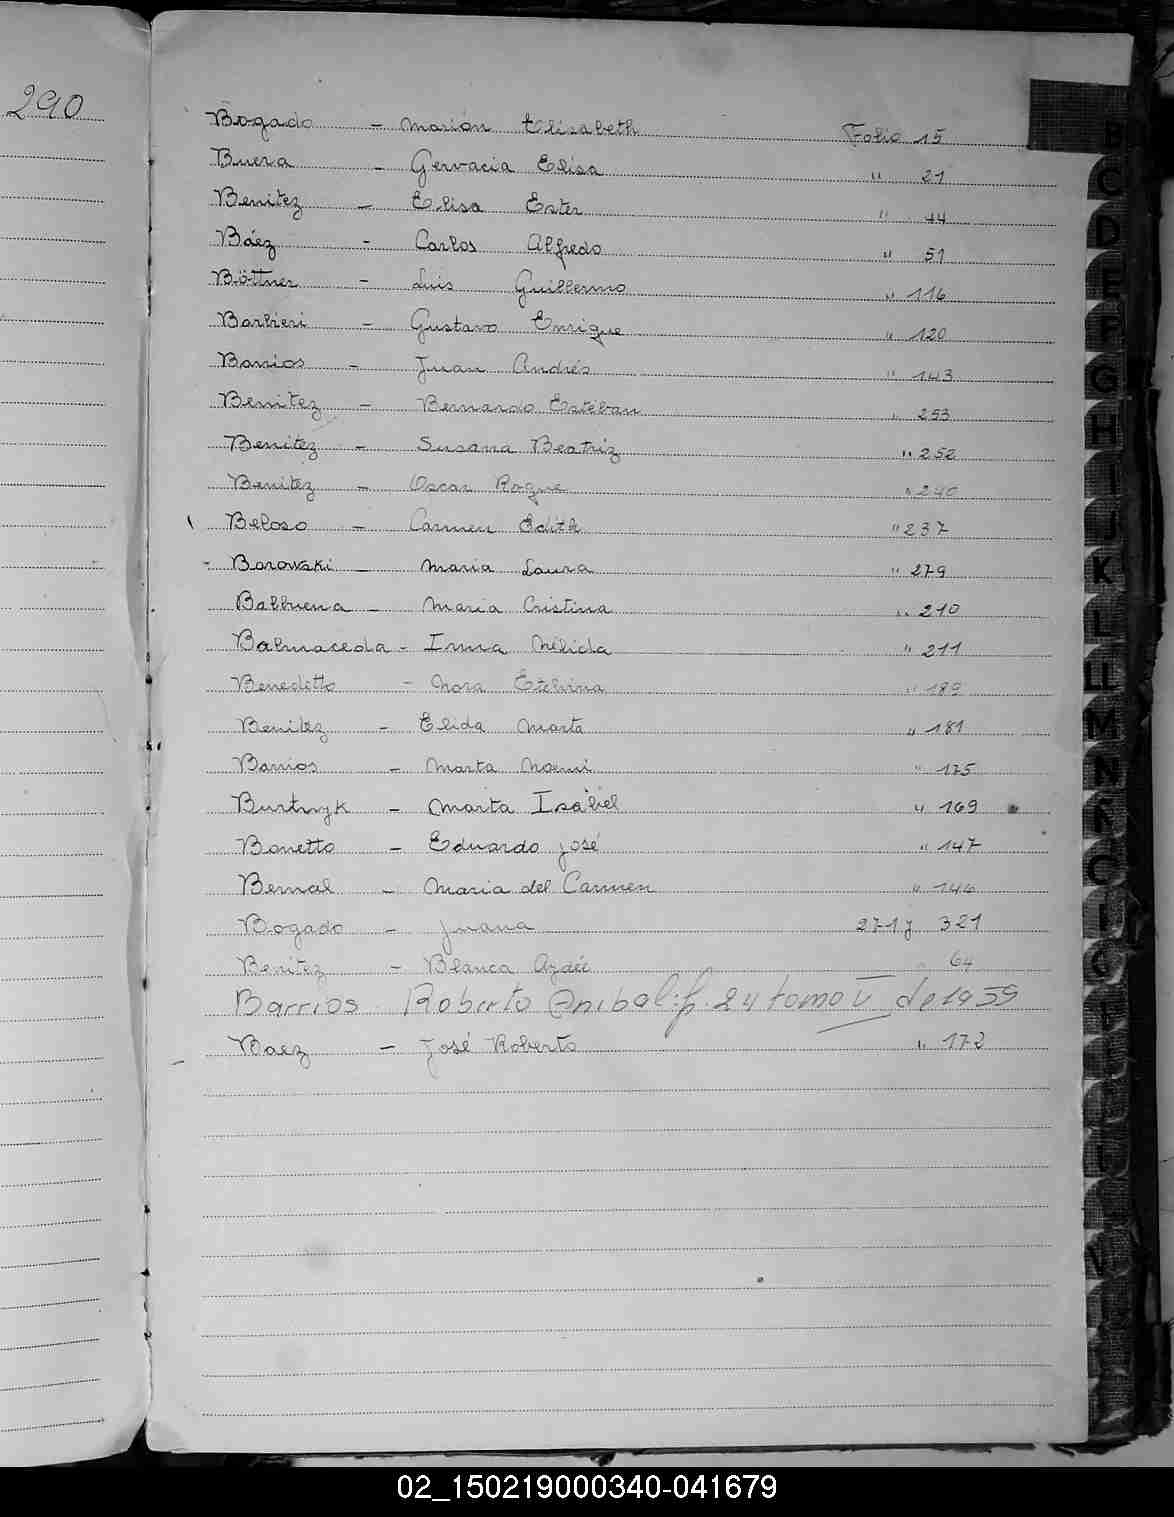 290
Bogado - Marion Elisabeth Folio 15
Buera - Gervacia Elisa " 21
Benitez - Elisa Ester " 44
Báez - Carlos Alfredo " 51
Böttner - Luis Guillermo " 116
Barbieri - Gustavo Enrique " 120
Barrios - Juan Andrés " 143
Benitez - Bernardo Esteban " 253
Benitez - Susana Beatriz " 252
Benitez - Oscar Roque " 240
Beloso - Carmen Edith " 237
Borowski - Maria Laura " 279
Balbuena - Maria Cristina " 210
Balmaceda - Irma Nélida " 211
Beneditto - Nora Etelvina " 189
Benitez - Elida Marta " 181
Barrios - Marta Noemi " 175
Burtnyk - Marta Isabel " 169
Bonetto - Eduardo José " 147
Bernal - Maria del Carmen " 146
Bogado - Juana 321
Benitez - Blanca " 64
Barrios Roberto Anibal: f. 24 tomo V de 1959
Baez - José Roberto " 172
B
C
D
E
F
G
H
I
J
K
L
LL
M
N
Ñ
O
02_150219000340-041679